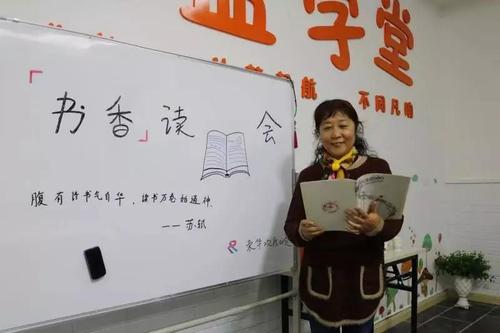 学堂
航 不同凡响
「书香」读 会
腹有诗书气自华，读书万卷始通神.
—— 苏轼